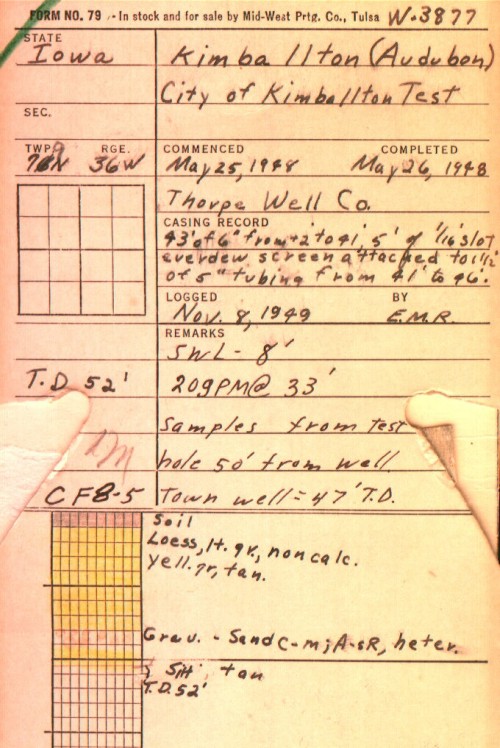 FORM NO. 79 - In stock and for sale by Mid-West Prtg. Co., Tulsa W-3877
STATE
Iowa
Kimballton (Audubon)
City of Kimballton Test
SEC.
TWP. RGE. COMMENCED COMPLETED
36W May 25, 1948 May 26, 1948
Thorpe Well Co.
CASING RECORD
43' of 6" from +2 to 41', 5' of 1/16 slot
everdew screen attached to 1 1/2'
of 5" tubing from 41' to 46'.
LOGGED BY
Nov. 8, 1949 E.M.R.
REMARKS
SWL - 8'
T.D 52' 20gPM@ 33'
Samples from test
hole 50' from well
CF8-5 Town well = 47' T.D.
Soil
Loess, lt. gr, noncalc.
Yell. gr, tan.
Grav. - Sand C-m; A-sR, heter.
Silt, tan
T.D. 52'